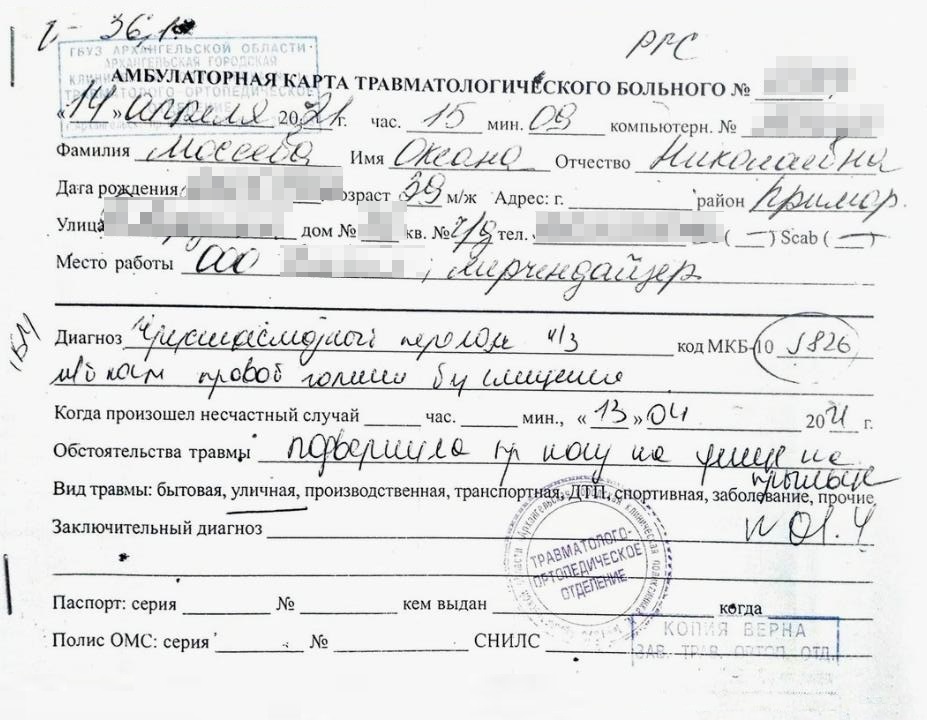 t - 36,1
РГС
ГБУЗ АРХАНГЕЛЬСКОЙ ОБЛАСТИ
АРХАНГЕЛЬСКАЯ ГОРОДСКАЯ
АМБУЛАТОРНАЯ КАРТА ТРАВМАТОЛОГИЧЕСКОГО БОЛЬНОГО №
«14» апреля 2021г. час. 15 мин. 09 компьютерн. №
Фамилия Мосеева Имя Оксана Отчество Николаевна
Дата рождения возраст 39 м/ж Адрес: г. район Примор.
Улица дом № кв. № ч/д тел. ( — ) Scab ( — )
Место работы ООО , мерчендайзер
Диагноз Чрезмыщелковый перелом н/з код МКБ-10 S826
правой голени б/смещения
Когда произошел несчастный случай час. мин., «13» 04 2021 г.
Обстоятельства травмы подвернула пр ногу на улице на
Вид травмы: бытовая, уличная, производственная, транспортная, ДТП, спортивная, заболевание, прочие
Заключительный диагноз
ТРАВМАТОЛОГО-
ОРТОПЕДИЧЕСКОЕ
ОТДЕЛЕНИЕ
Паспорт: серия № кем выдан когда
Полис ОМС: серия № СНИЛС
КОПИЯ ВЕРНА
ЗАВ. ТРАВ. ОРТОП. ОТД.